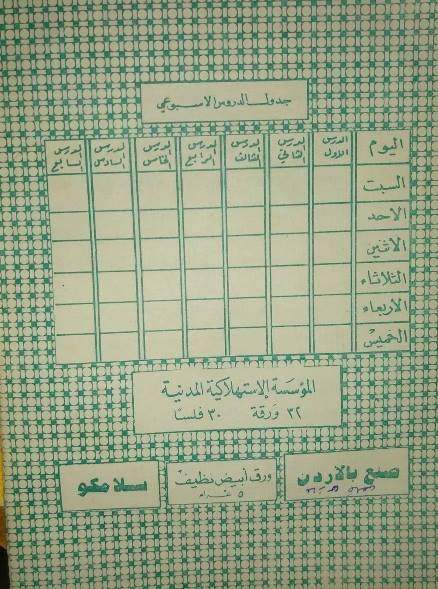 جدول الدروس الاسبوعي
اليوم الدرس الاول الدرس الثاني الدرس الثالث الدرس الرابع الدرس الخامس الدرس السادس الدرس السابع
السبت
الاحد
الاثنين
الثلاثاء
الاربعاء
الخميس
المؤسسة الإستهلاكية المدنية
٣٢ ورقة ٣٠ فلسًا
صنع بالاردن
ورق أبيض نظيف
٥
سلامكو